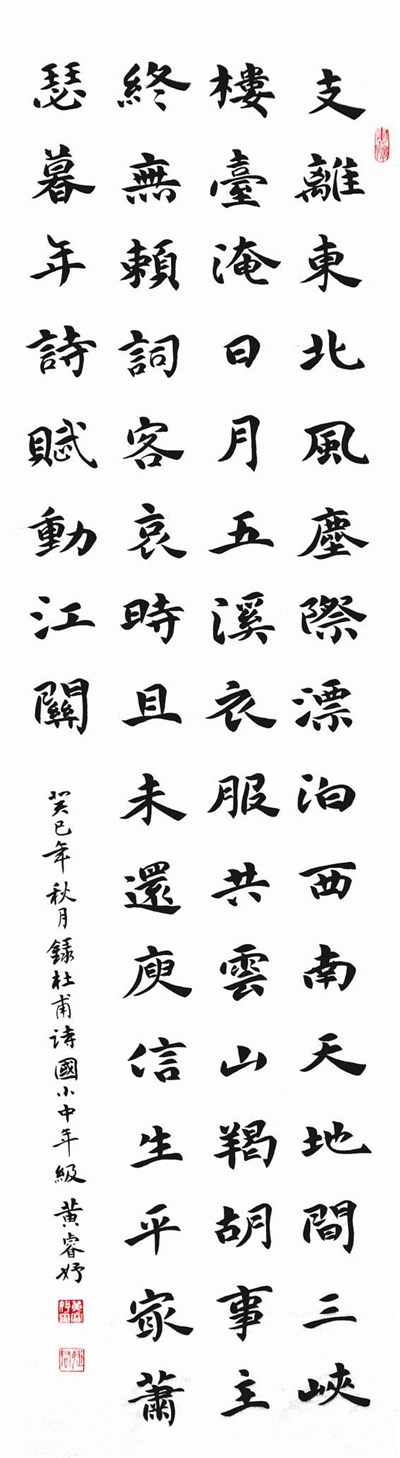 支離東北風塵際漂泊西南天地間三峽
樓臺淹日月五溪衣服共雲山羯胡事主
終無賴詞客哀時且未還庾信生平冣蕭
瑟暮年詩賦動江關
癸巳年秋月錄杜甫詩國小中年級黃睿妤